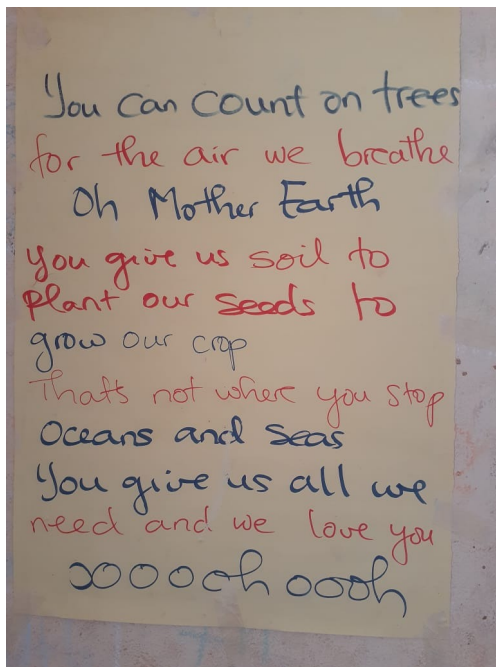 You can count on trees
for the air we breathe
Oh Mother Earth
You give us soil to
plant our seeds to
grow our crop
Thats not where you stop
Oceans and seas
You give us all we
need and we love you
ooooch oooh